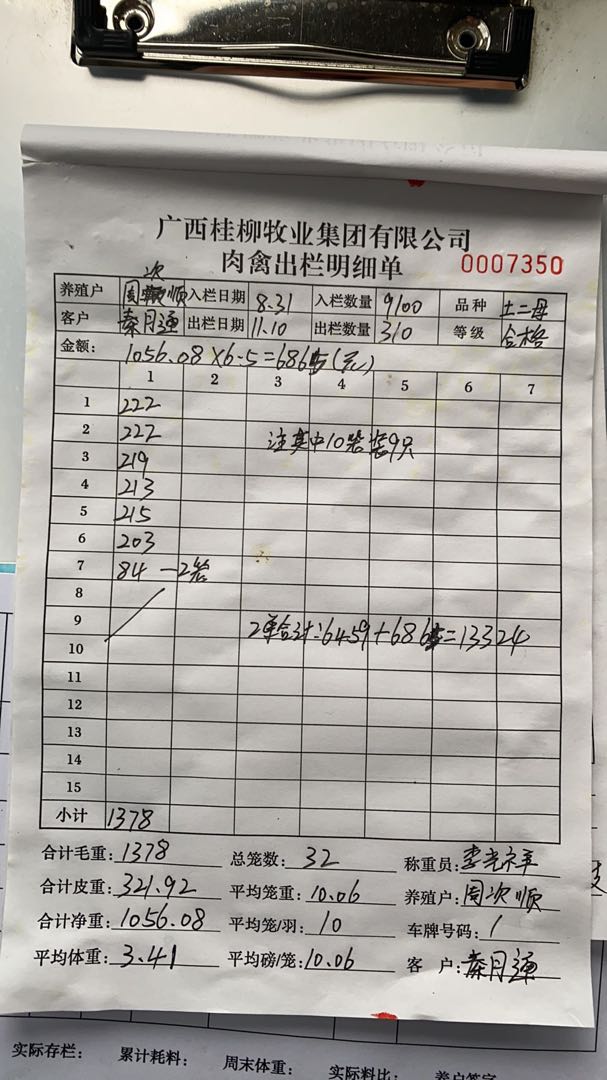 广西桂柳牧业集团有限公司
肉禽出栏明细单 0007350
次
养殖户 周顺 入栏日期 8.31 入栏数量 9100 品种 土二母
客户 秦月 出栏日期 11.10 出栏数量 310 等级 合格
金额: 1056.08×6.5=686(元)
1 2 3 4 5 6 7
1 222
2 222 注其中10笼装9只
3 219
4 213
5 215
6 203
7 84 -2笼
8
9 2单合计:6459+686=13324
10
11
12
13
14
15
小计 1378
合计毛重: 1378 总笼数: 32 称重员: 李光祥
合计皮重: 321.92 平均笼重: 10.06 养殖户: 周次顺
合计净重: 1056.08 平均笼/羽: 10 车牌号码: /
平均体重: 3.41 平均磅/笼: 10.06 客户: 秦月
实际存栏: 累计耗料: 周末体重: 实际料比: 养户签字